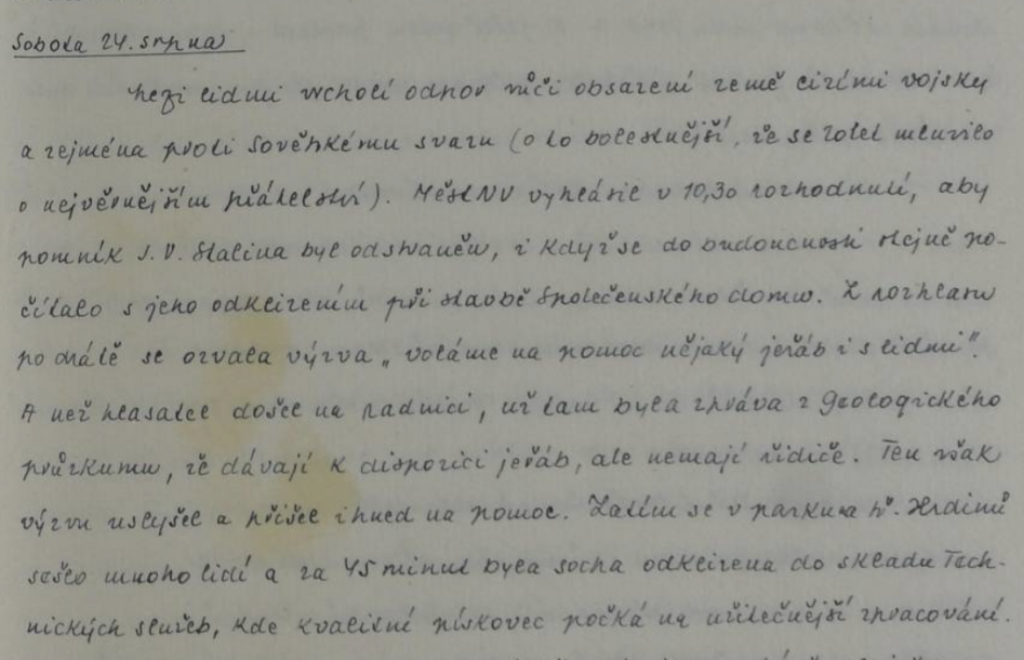 Sobota 24. srpna
Mezi lidmi vrcholí odpor vůči obsazení země cizími vojsky
a zejména proti Sovětskému svazu (o to bolestnější, že se tolik mluvilo
o nejvěrnějším přátelství). MěstNV vyhlásil v 10,30 rozhodnutí, aby
pomník J. V. Stalina byl odstraněn, i když se do budoucnosti stejně po-
čítalo s jeho odklizením při stavbě Společenského domu. Z rozhlasu
po drátě se ozvala výzva „voláme na pomoc nějaký jeřáb i s lidmi".
A než hlasatel došel na radnici, už tam byla zpráva z Geologického
průzkumu, že dávají k dispozici jeřáb, ale nemají řidiče. Ten však
výzvu uslyšel a přišel ihned na pomoc. Zatím se v parku na tř. Hrdinů
sešlo mnoho lidí a za 45 minut byla socha odklizena do skladu Tech-
nických služeb, kde kvalitní pískovec počká na užitečnější zpracování.